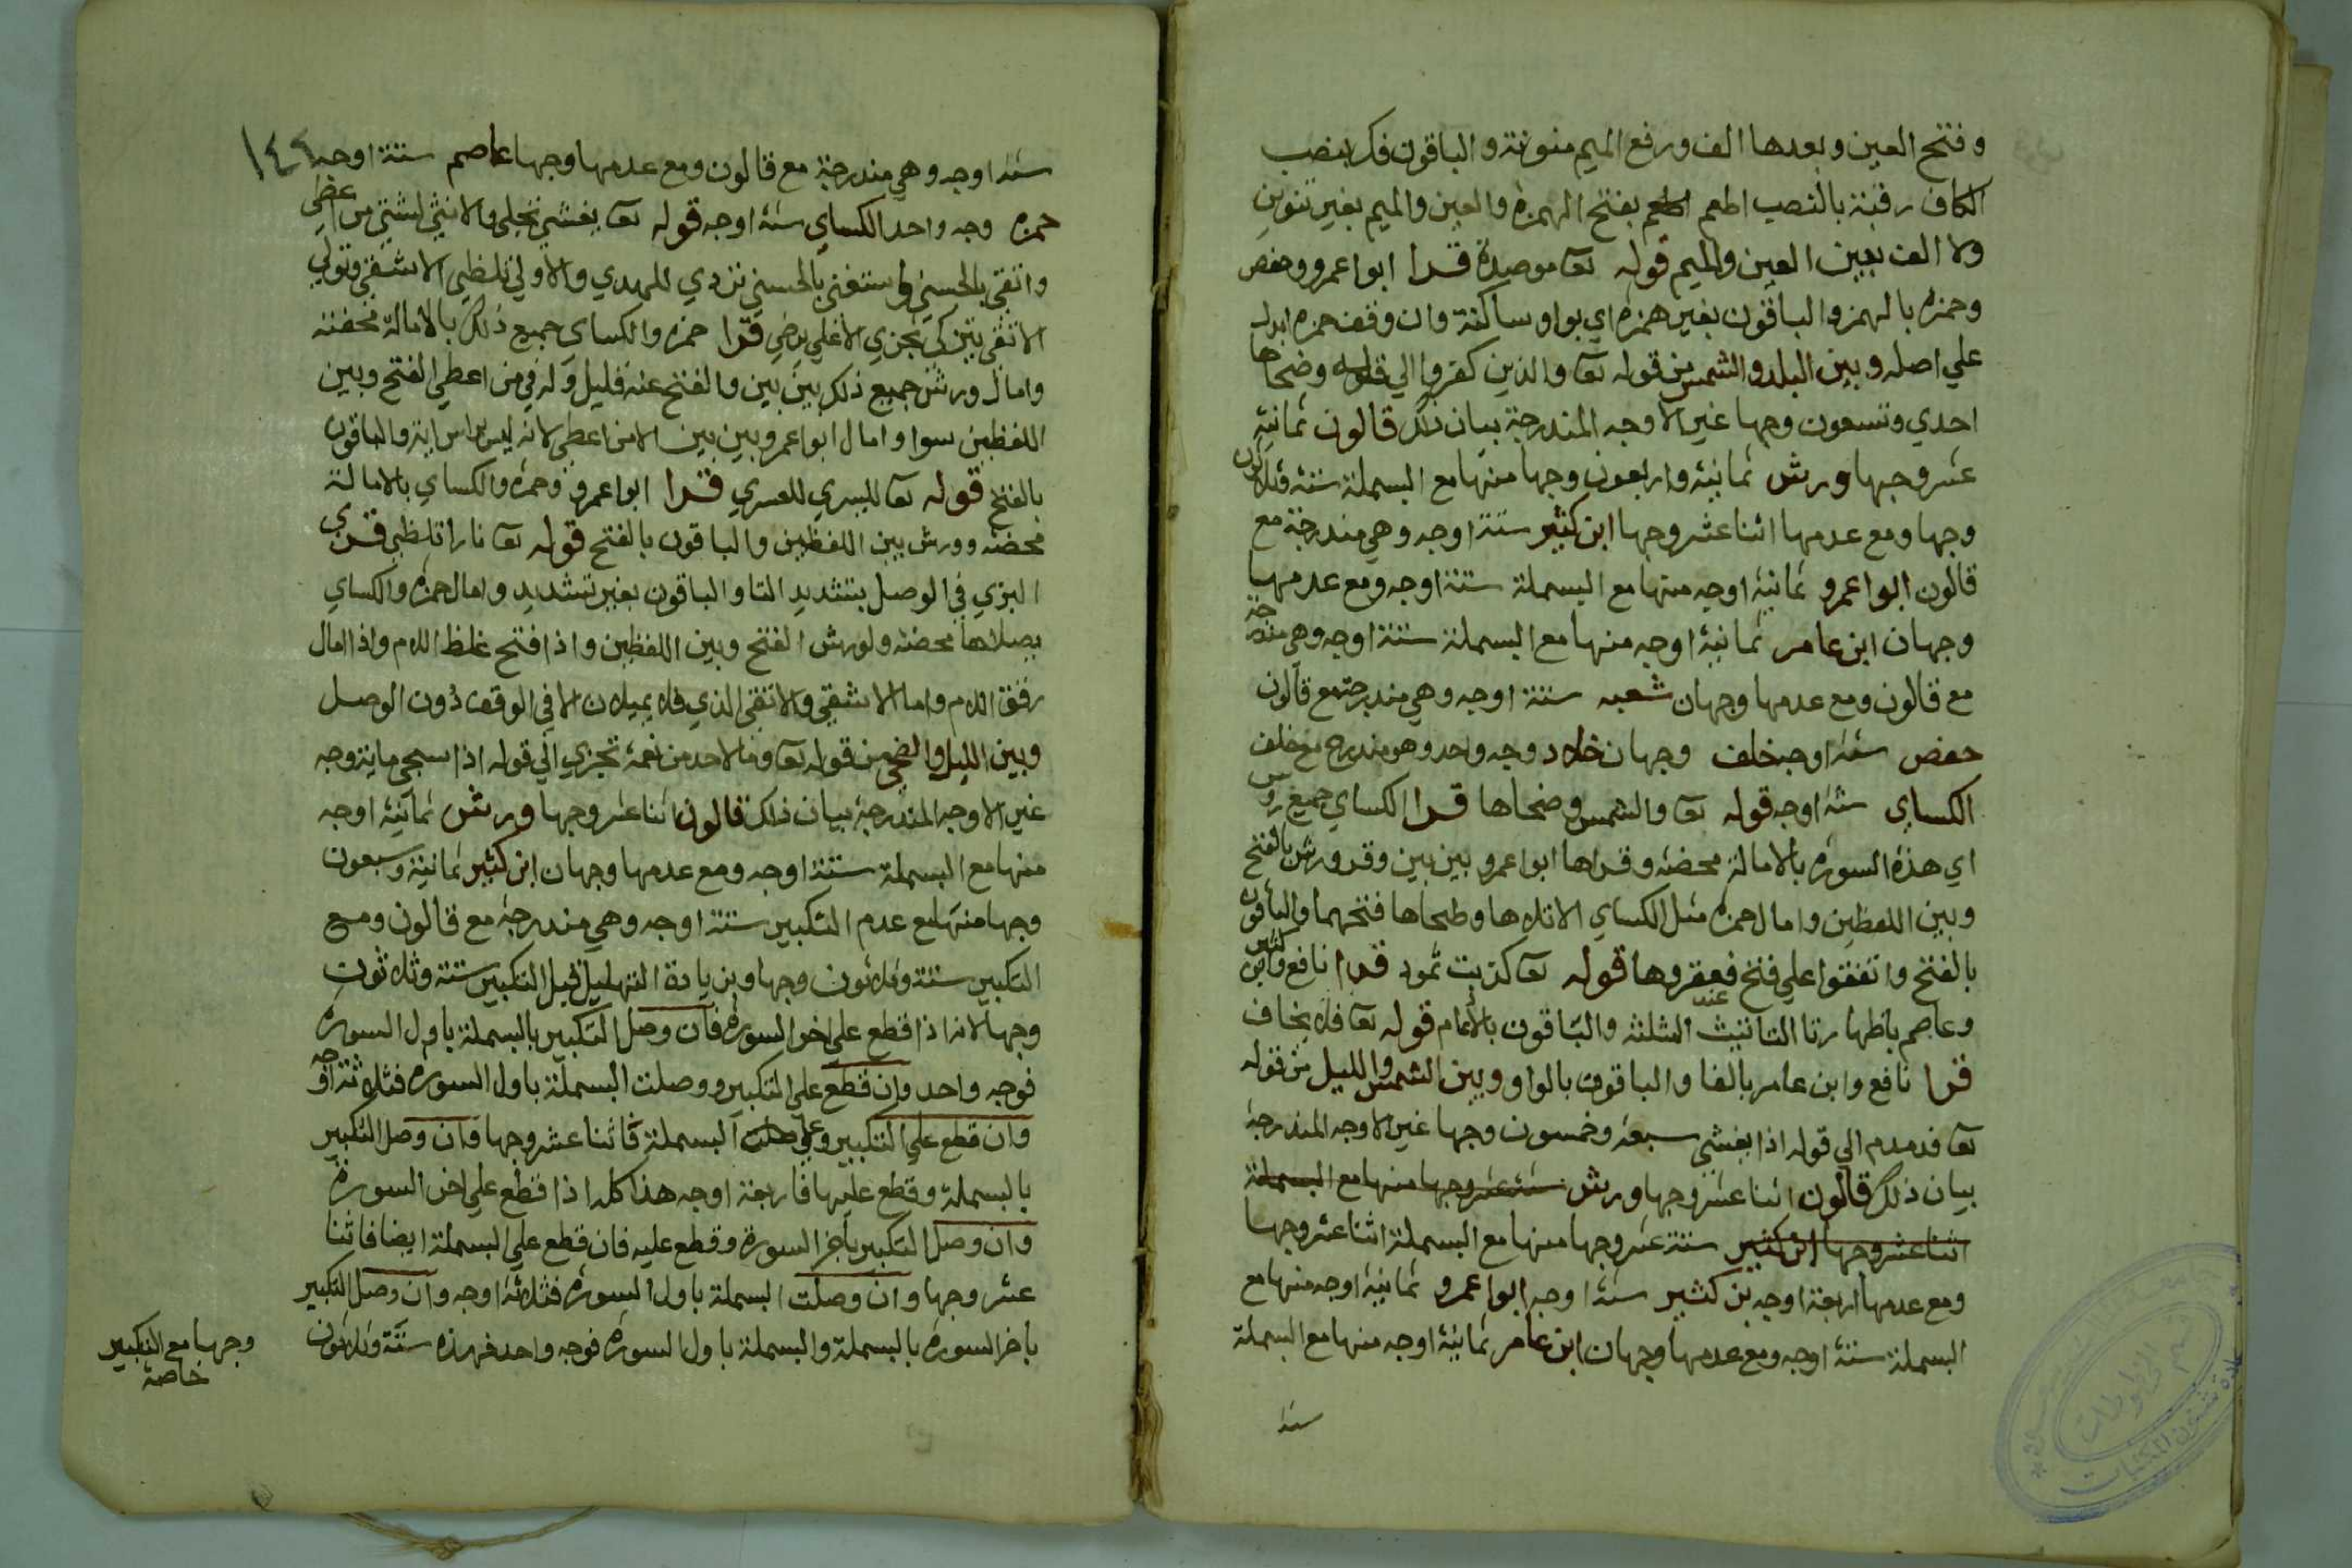 وفتح العين وبعدها الف ورفع الميم منونة والباقون فك بنصب
الكاف رقبة بالنصب اطعم بفتح الهمزة والعين والميم بغير تنوين
ولا الف بين العين والميم قوله تعا موصدة قرا ابوا عمرو وحفص
وحمزه بالهمز والباقون بغير همزه اي بواو ساكنة وان وقف حمزه ابدل
علي اصله وبين البلد والشمس من قوله تعا والذين كفروا الي قوله وضحاها
احدي وتسعون وجها غير الاوجه المندرجة بيان ذلك قالون ثمانية
عشر وجها ورش ثمانية واربعون وجها منها مع البسملة ستة وثلاثون
وجها ومع عدمها اثنا عشر وجها ابن كثير ستة اوجه وهي مندرجة مع
قالون ابوا عمرو ثمانية اوجه منها مع البسملة ستة اوجه ومع عدمها
وجهان ابن عامر ثمانية اوجه منها مع البسملة ستة اوجه وهي مندرجة
مع قالون ومع عدمها وجهان شعبه ستة اوجه وهي مندرجة مع قالون
حفص ستة اوجه خلف وجهان خلاد وجه واحد وهو مندرج مع خلف
الكساي ستة اوجه قوله تعا والشمس وضحاها قرا الكساي جميع روس
اي هذه السورة بالامالة محضه وقراها ابوا عمرو بين بين وقرا ورش بالفتح
وبين اللفظين وامال حمزه مثل الكساي الا تلاها وطحاها فتحهما والباقون
بالفتح واتفقوا علي فتح فعقروها قوله تعا كذبت ثمود قرا نافع وابن كثير
وعاصم باظهار تا التانيث عند المثلثه والباقون بالادغام قوله تعا فلا يخاف
قرا نافع وابن عامر بالفا والباقون بالواو وبين الشمس والليل من قوله
تعا فدمدم الي قوله اذا يغشي سبعة وخمسون وجها غير الاوجه المندرجة
بيان ذلك قالون اثنا عشر وجها ورش ستة عشر وجها منها مع البسملة
اثنا عشر وجها ابن كثير ستة عشر وجها منها مع البسملة اثنا عشر وجها
ومع عدمها اربعة اوجه بن كثير ستة اوجه ابوا عمرو ثمانية اوجه منها مع
البسملة ستة اوجه ومع عدمها وجهان ابن عامر ثمانية اوجه منها مع البسملة
ستة
١٤٤
ستة اوجه وهي مندرجة مع قالون ومع عدمها وجها عاصم ستة اوجه
حمزه وجه واحد الكساي ستة اوجه قوله تعا يغشي تجلي والانثي لشتي من اعطي
واتقي بالحسني واستغني بالحسني تردي للهدي والاولي تلظي الاشقي وتولي
الاتقي يتزكي تجزي الاعلي يرضي قرا حمزه والكساي جميع ذلك بالامالة محضه
وامال ورش جميع ذلك بين بين والفتح عنه قليل وله في من اعطي الفتح وبين
اللفظين سوا وامال ابوا عمرو بين بين الا من اعطي لانه ليس براس اية والباقون
بالفتح قوله تعا لليسري للعسري قرا ابوا عمرو وحمزه والكساي بالامالة
محضه وورش بين اللفظين والباقون بالفتح قوله تعا نارا تلظي قرا
البزي في الوصل بتشديد التا والباقون بغير تشديد وامال حمزه والكساي
يصلاها محضه ولورش الفتح وبين اللفظين واذا فتح غلظ اللام واذا امال
رقق اللام واما الاشقي والاتقي الذي فلا يميلان الا في الوقف دون الوصل
وبين الليل والضحي من قوله تعا وما لاحد من نعمة تجزي الي قوله اذا سجي ماية وجه
غير الاوجه المندرجة بيان ذلك قالون اثنا عشر وجها ورش ثمانية اوجه
منها مع البسملة ستة اوجه ومع عدمها وجهان ابن كثير ثمانية وسبعون
وجها منها مع عدم التكبير ستة اوجه وهي مندرجة مع قالون ومع
التكبير ستة وثلاثون وجها وبزيادة التهليل قبل التكبير ستة وثلاثون
وجها لانه اذا قطع علي اخر السورة فان وصل التكبير بالبسملة باول السورة
فوجه واحد وان قطع علي التكبير ووصلت البسملة باول السورة فثلاثة اوجه
وان قطع علي التكبير وعلي البسملة فاثنا عشر وجها وان وصل التكبير
بالبسملة وقطع عليها فاربعة اوجه هذا كله اذا قطع علي اخر السورة
وان وصل التكبير باخر السورة وقطع عليه فان قطع علي البسملة ايضا فاثنا
عشر وجها وان وصلت البسملة باول السورة فثلاثة اوجه وان وصل التكبير
باخر السورة بالبسملة والبسملة باول السورة فوجه واحد فهذه ستة وثلاثون
وجها مع التكبير
خاصة